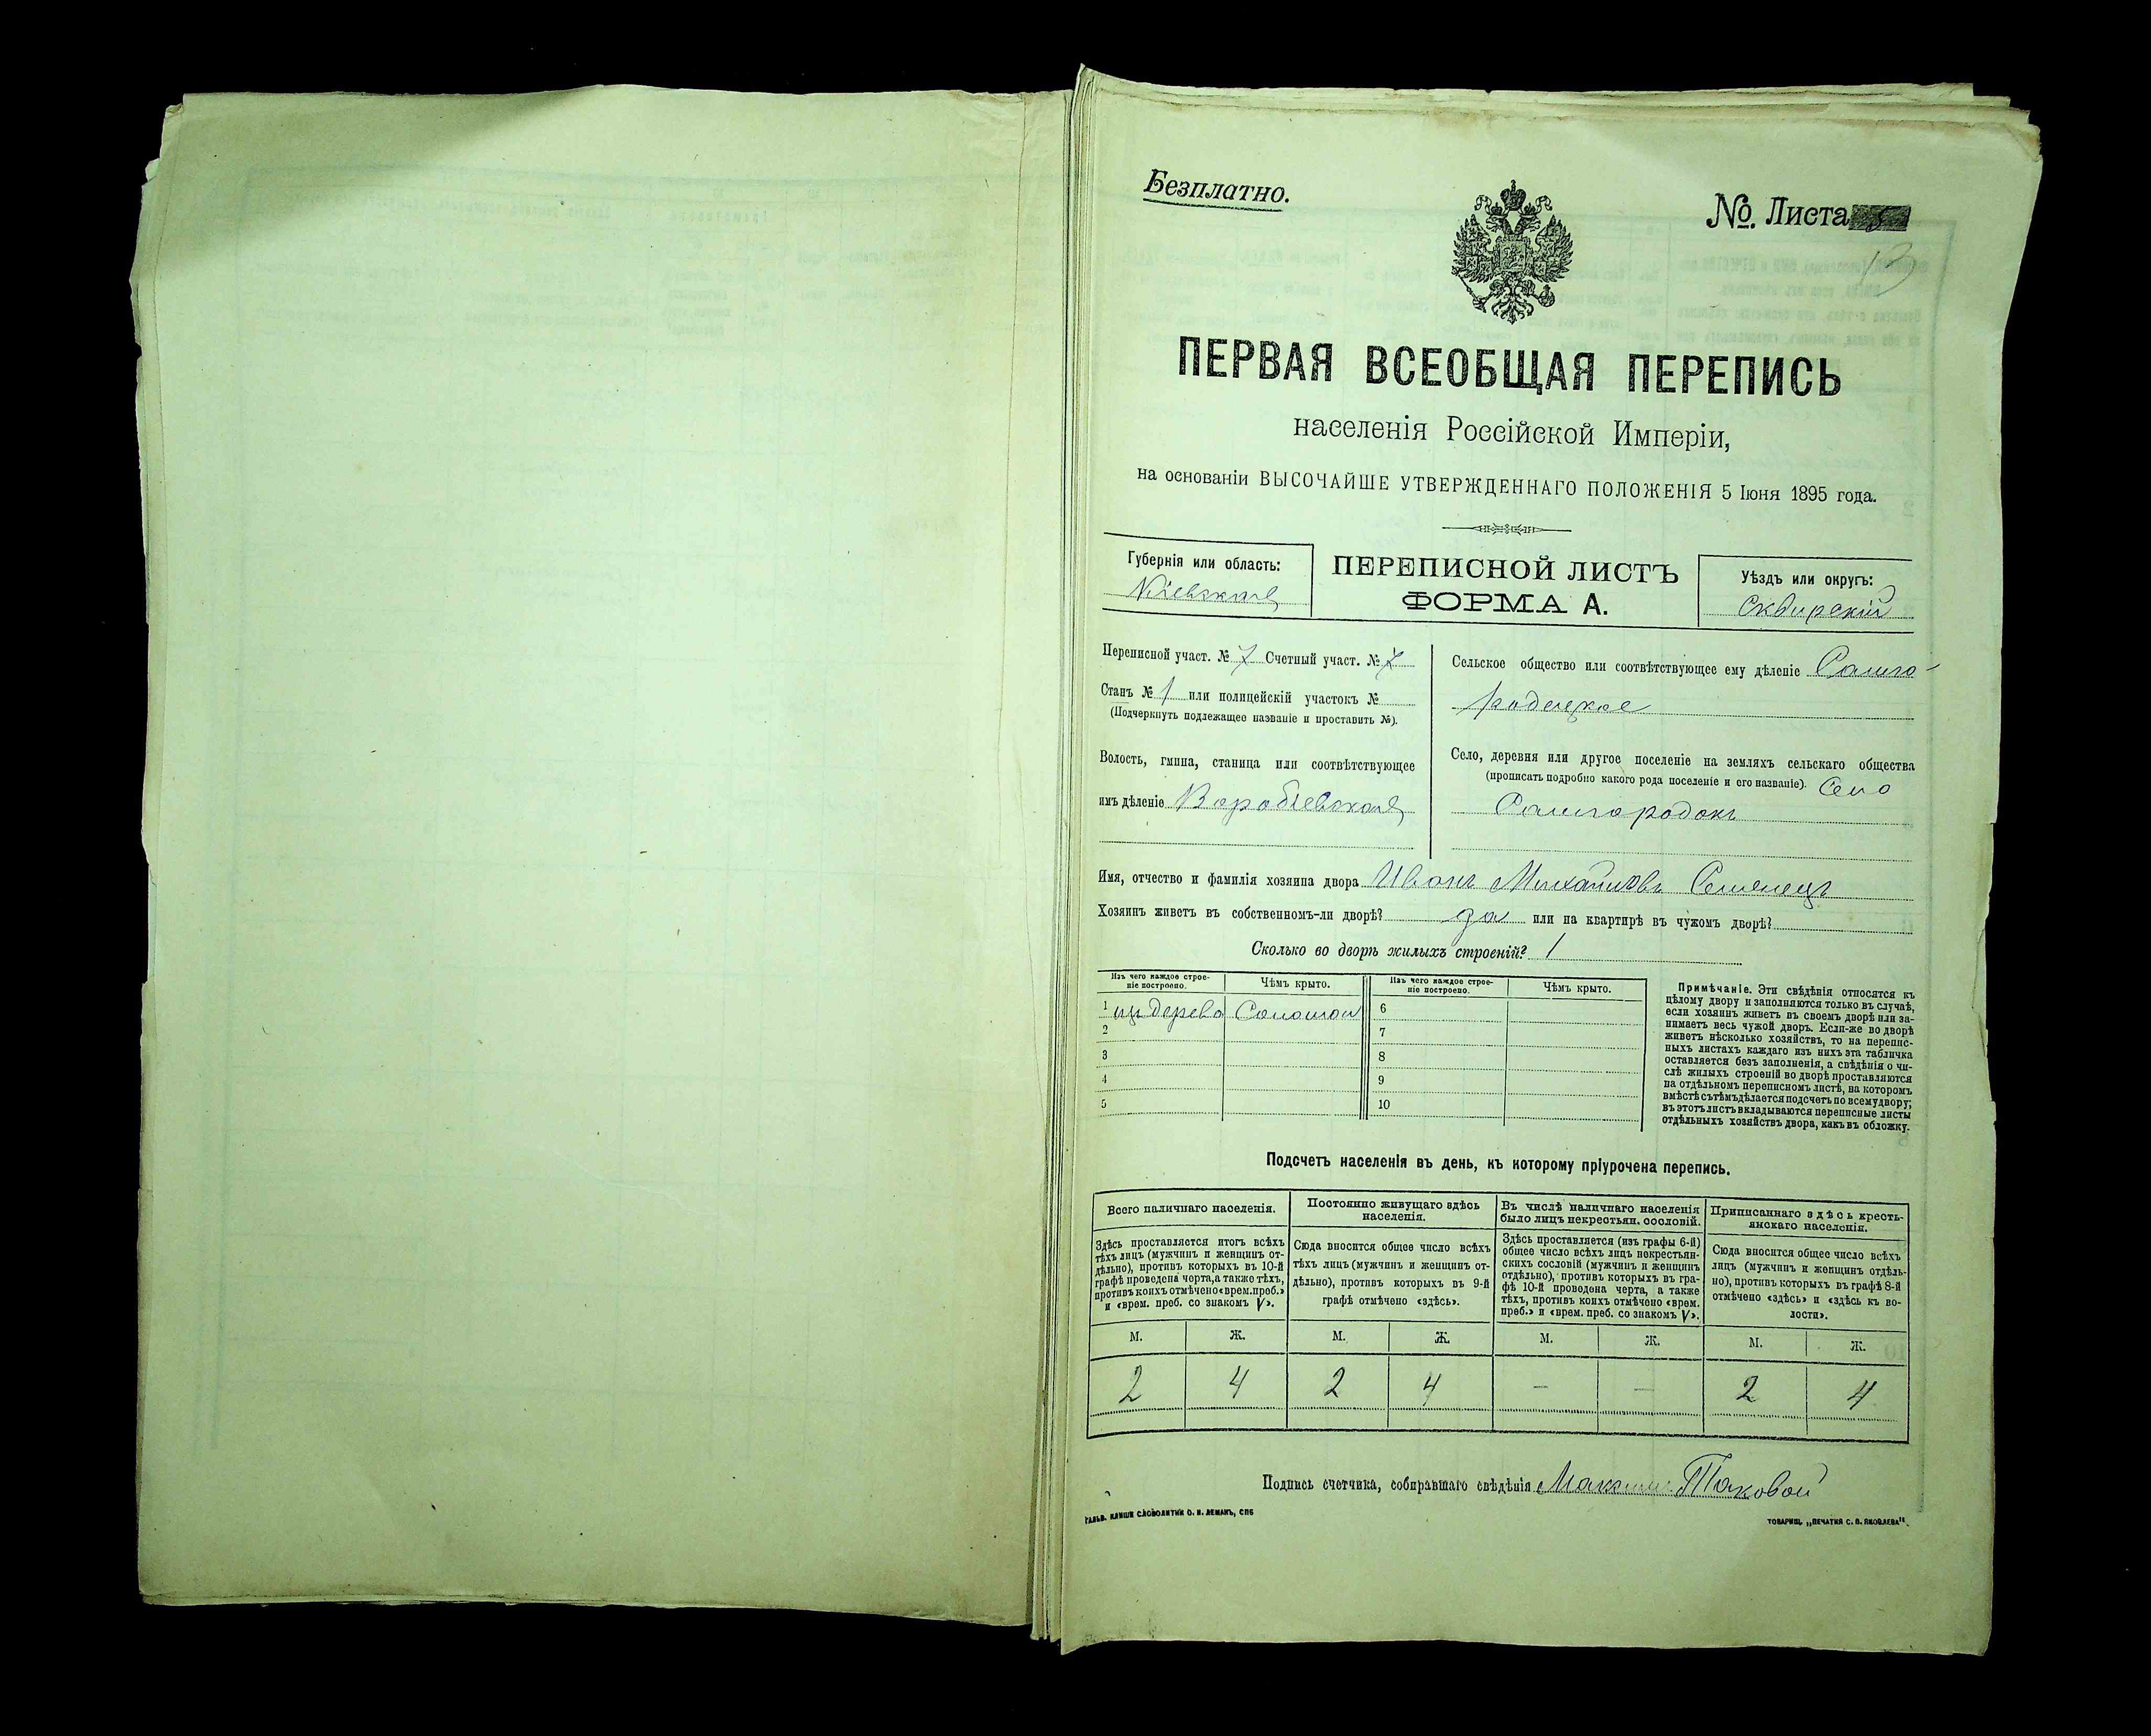 Безплатно.
№ Листа 5
13
ПЕРВАЯ ВСЕОБЩАЯ ПЕРЕПИСЬ
населенія Россійской Имперіи,
на основаніи ВЫСОЧАЙШЕ УТВЕРЖДЕННАГО ПОЛОЖЕНІЯ 5 Іюня 1895 года.
Губернія или область:
Кіевская
ПЕРЕПИСНОЙ ЛИСТЪ
ФОРМА А.
Уѣздъ или округъ:
Сквирскій
Переписной участ. № 7 Счетный участ. № 7
Станъ № 1 или полицейскій участокъ №
(Подчеркнуть подлежащее названіе и проставить №).
Волость, гмина, станица или соотвѣтствующее
имъ дѣленіе Воробіевская
Сельское общество или соотвѣтствующее ему дѣленіе Самго-
родецкое
Село, деревня или другое поселеніе на земляхъ сельскаго общества
(прописать подробно какого рода поселеніе и его названіе). Село
Самгородокъ
Имя, отчество и фамилія хозяина двора Иванъ Михайловъ Семенецъ
Хозяинъ живетъ въ собственномъ-ли дворѣ? да или на квартирѣ въ чужомъ дворѣ?
Сколько во дворѣ жилыхъ строеній? 1
Изъ чего каждое строе-
ніе построено.
Чѣмъ крыто.
Изъ чего каждое строе-
ніе построено.
Чѣмъ крыто.
1 изъ дерева Соломой
2
3
4
5
6
7
8
9
10
Примѣчаніе. Эти свѣдѣнія относятся къ
цѣлому двору и заполняются только въ случаѣ,
если хозяинъ живетъ въ своемъ дворѣ или за-
нимаетъ весь чужой дворъ. Если-же во дворѣ
живетъ нѣсколько хозяйствъ, то на перепис-
ныхъ листахъ каждаго изъ нихъ эта табличка
оставляется безъ заполненія, а свѣдѣнія о чи-
слѣ жилыхъ строеній во дворѣ проставляются
на отдѣльномъ переписномъ листѣ, на которомъ
вмѣстѣ съ тѣмъ дѣлается подсчетъ по всему двору;
въ этотъ листъ вкладываются переписные листы
отдѣльныхъ хозяйствъ двора, какъ въ обложку.
Подсчетъ населенія въ день, къ которому пріурочена перепись.
Всего наличнаго населенія.
Здѣсь проставляется итогъ всѣхъ
тѣхъ лицъ (мужчинъ и женщинъ от-
дѣльно), противъ которыхъ въ 10-й
графѣ проведена черта, а также тѣхъ,
противъ коихъ отмѣчено «врем. преб.»
и «врем. преб. со знакомъ V».
Постоянно живущаго здѣсь
населенія.
Сюда вносится общее число всѣхъ
тѣхъ лицъ (мужчинъ и женщинъ от-
дѣльно), противъ которыхъ въ 9-й
графѣ отмѣчено «здѣсь».
Въ числѣ наличнаго населенія
было лицъ некрестьян. сословій.
Здѣсь проставляется (изъ графы 6-й)
общее число всѣхъ лицъ некрестьян-
скихъ сословій (мужчинъ и женщинъ
отдѣльно), противъ которыхъ въ гра-
фѣ 10-й проведена черта, а также
тѣхъ, противъ коихъ отмѣчено «врем.
преб.» и «врем. преб. со знакомъ V».
Приписаннаго здѣсь кресть-
янскаго населенія.
Сюда вносится общее число всѣхъ
лицъ (мужчинъ и женщинъ отдѣль-
но), противъ которыхъ въ графѣ 8-й
отмѣчено «здѣсь» и «здѣсь къ во-
лости».
М. Ж. М. Ж. М. Ж. М. Ж.
2 4 2 4 — — 2 4
Подпись счетчика, собиравшаго свѣдѣнія Максим Таковой
ГАЛЬВ. КЛИШЕ СЛОВОЛИТНИ О. И. ЛЕМАНЪ, СПБ
ТОВАРИЩ. „ПЕЧАТНЯ С. П. ЯКОВЛЕВА“.